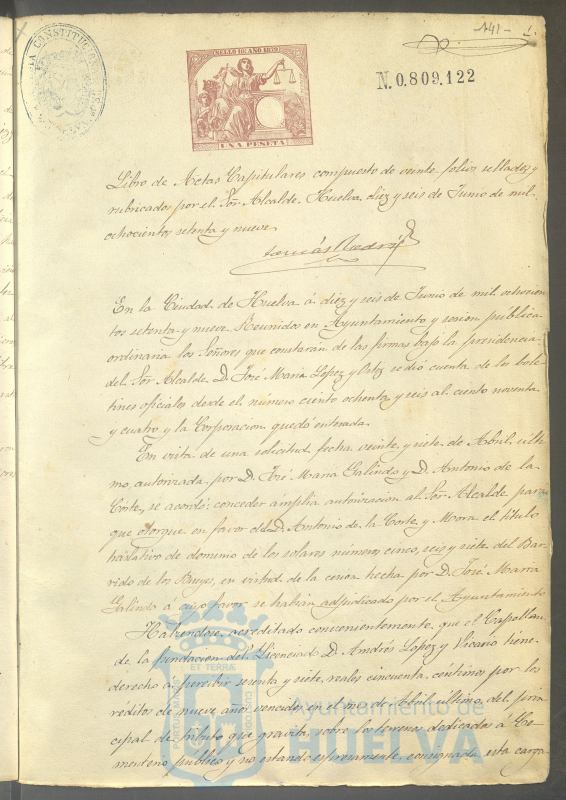 141-
1.
CONSTITUCION
SELLO 10º AÑO 1879
UNA PESETA
N.0.809.122
Libro de Actas Capitulares compuesto de veinte folios sellados y
rubricados por el Sor Alcalde. Huelva, diez y seis de Junio de mil
ochocientos setenta y nueve.
Tomás
En la Ciudad de Huelva á diez y seis de Junio de mil ochocien
tos setenta y nueve. Reunidos en Ayuntamiento y sesion publica
ordinaria los Señores que constarán de las firmas bajo la presidencia
del Sor Alcalde D. José Maria Lopez y se dió cuenta de los bole-
tines oficiales desde el número ciento ochenta y seis al ciento noventa
y cuatro y la Corporacion quedó enterada.
En vista de una solicitud fecha veinte y siete de Abril últi-
mo, autorizada por D. José Maria Galindo y D. Antonio de la
Corte, se acordó: conceder ámplia autorizacion al Sor Alcalde para
que otorgue en favor del D. Antonio de la Corte y Mora el título
traslativo de dominio de los solares números cinco, seis y siete del Bar-
rido de los en virtud de la cesion hecha por D. José Maria
Galindo á cuyo favor se habian adjudicado por el Ayuntamiento
Habiendose acreditado convenientemente que el Capellan
de la fundacion del Licenciado D. Andrés Lopez y Vicario tiene
derecho á percibir setenta y siete reales cincuenta céntimos por los
réditos de nueve años vencidos en el mes de Abril último, del prin
cipal de tributo que gravita sobre los terrenos dedicados á Ce-
menterio publico y no estando espresamente consignada esta carga
ET TERRA
PORTUS MARIS
CUSTODIA
Ayuntamiento de
HUELVA